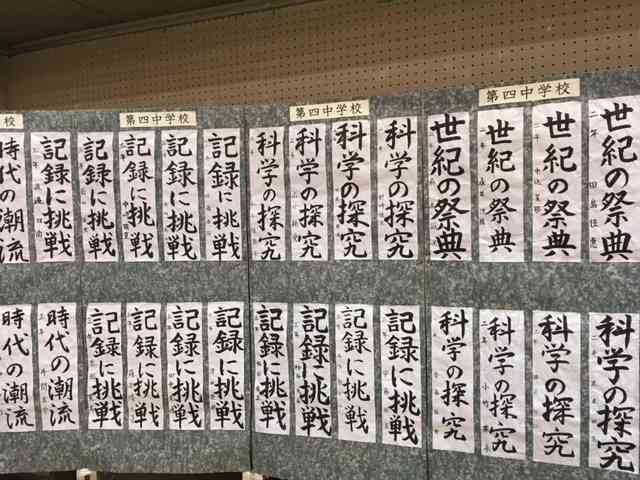 校
第四中学校
第四中学校
第四中学校
時代の潮流
記録に挑戦
記録に挑戦
記録に挑戦
記録に挑戦
記録に挑戦
科学の探究
科学の探究
科学の探究
科学の探究
世紀の祭典
世紀の祭典
世紀の祭典
世紀の祭典
二年
時代の潮流
時代の潮流
記録に挑戦
記録に挑戦
記録に挑戦
記録に挑戦
記録に挑戦
記録に挑戦
記録に挑戦
記録に挑戦
科学の探究
科学の探究
科学の探究
科学の探究